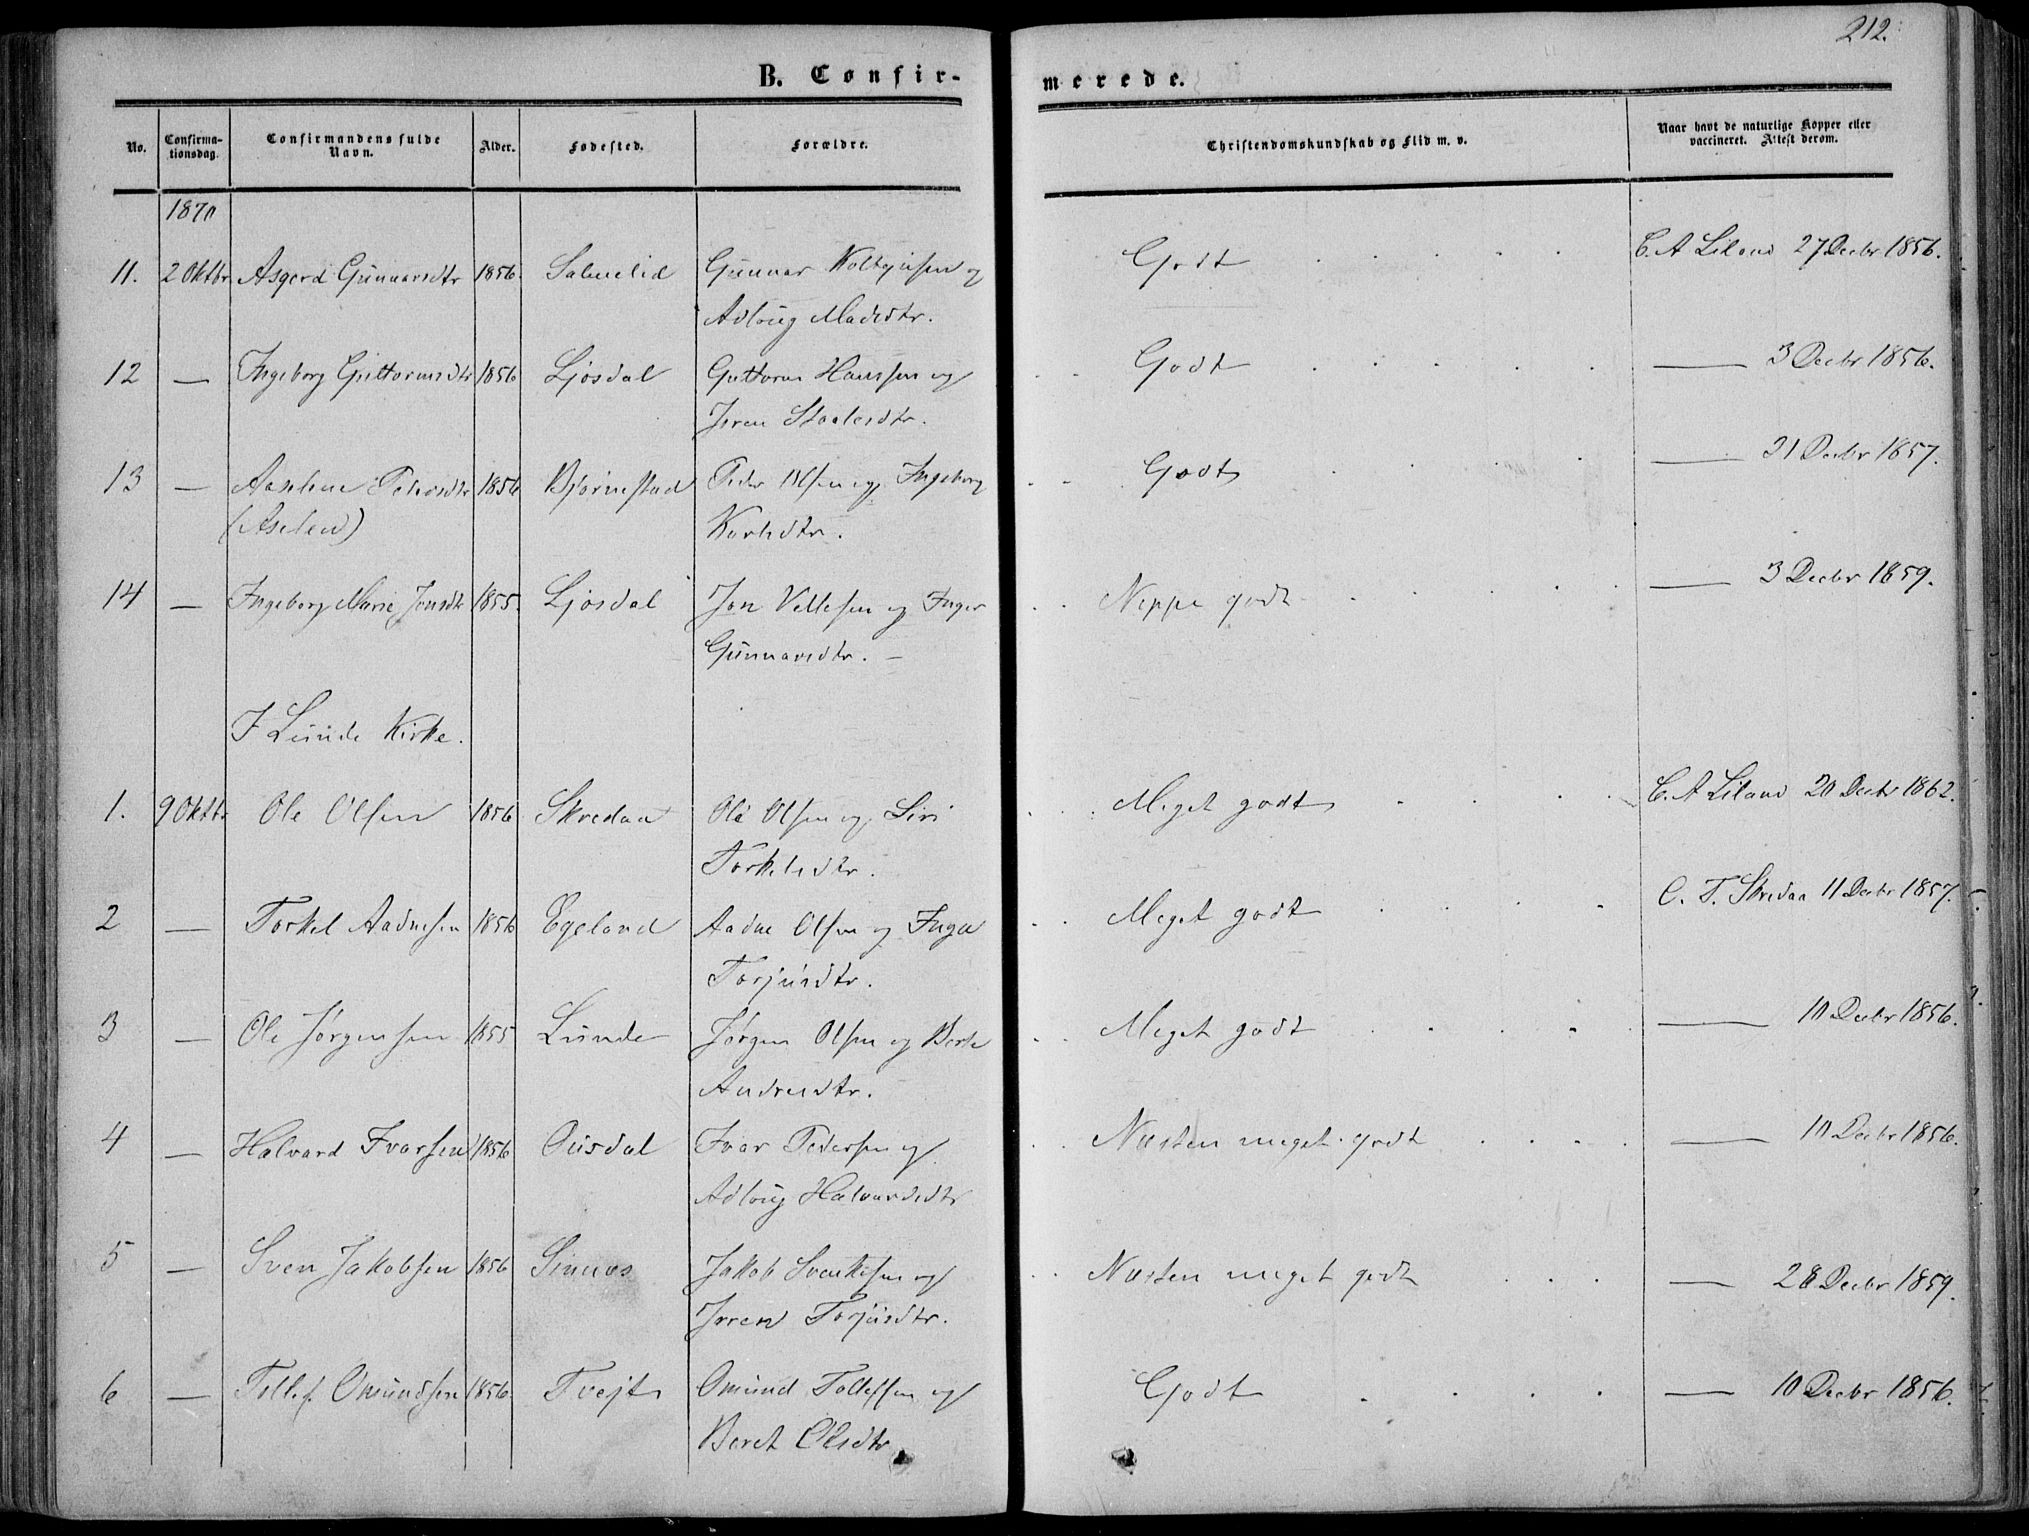 212.
B. Confirmerede.
No. Confirmationsdag. Confirmandens fulde Navn. Alder. Fødested. Forældre. Christendomskundskab og Flid m. v. Naar havt de naturlige Kopper eller vaccineret. Attest derom.
1870
11. 2 Oktbr Asgerd Gunnarsdtr 1856. Salmelid Gunnar og Godt C. A Liland 27 Decbr 1856.
Adloug Madsdtr.
12 — Ingeborg Guttormsdtr 1856 Ljosdal Guttorm Hanssen og Godt — 3 Decbr 1856.
Joren Staalesdtr.
13 — Aaselene Pedersdtr 1856 Bjørnestad Peder Olsen og Ingeborg Godt — 31 Decbr 1857.
(Aselen) Karlsdtr.
14 — Ingeborg Marie Jonsdtr 1855. Ljosdal Jon Vellesen og Inger Neppe godt — 3 Decbr 1859.
Gunnarsdtr. —
I Lunde Kirke.
1. 9 Oktbr Ole Olsen 1856 Skredaa Ole Olsen og Siri Meget godt C. A Liland 20 Decbr 1862.
Torkelsdtr.
2 — Torkel Aadnesen 1856 Egeland Aadne Olsen og Inga Meget godt C. T. Skredaa 11 Decbr 1857.
Torjusdtr.
3 — Ole Jørgensen 1855 Lunde Jørgen Olsen og Berte Meget godt — 10 Decbr 1856.
Andreasdtr.
4 — Halvard Ivarsen 1856 Ousdal Ivar Pedersen og Næsten meget godt — 10 Decbr 1856.
Adloug Halvardsdtr
5 — Sven Jakobsen 1856 Sinnes Jakob Svenkesen og Næsten meget godt — 28 Decbr 1859.
Joren Torjusdtr.
6 — Tollef Omundsen 1856. Tvejt Omund Tollefsen og Godt — 10 Decbr 1856.
Beret Olsdtr